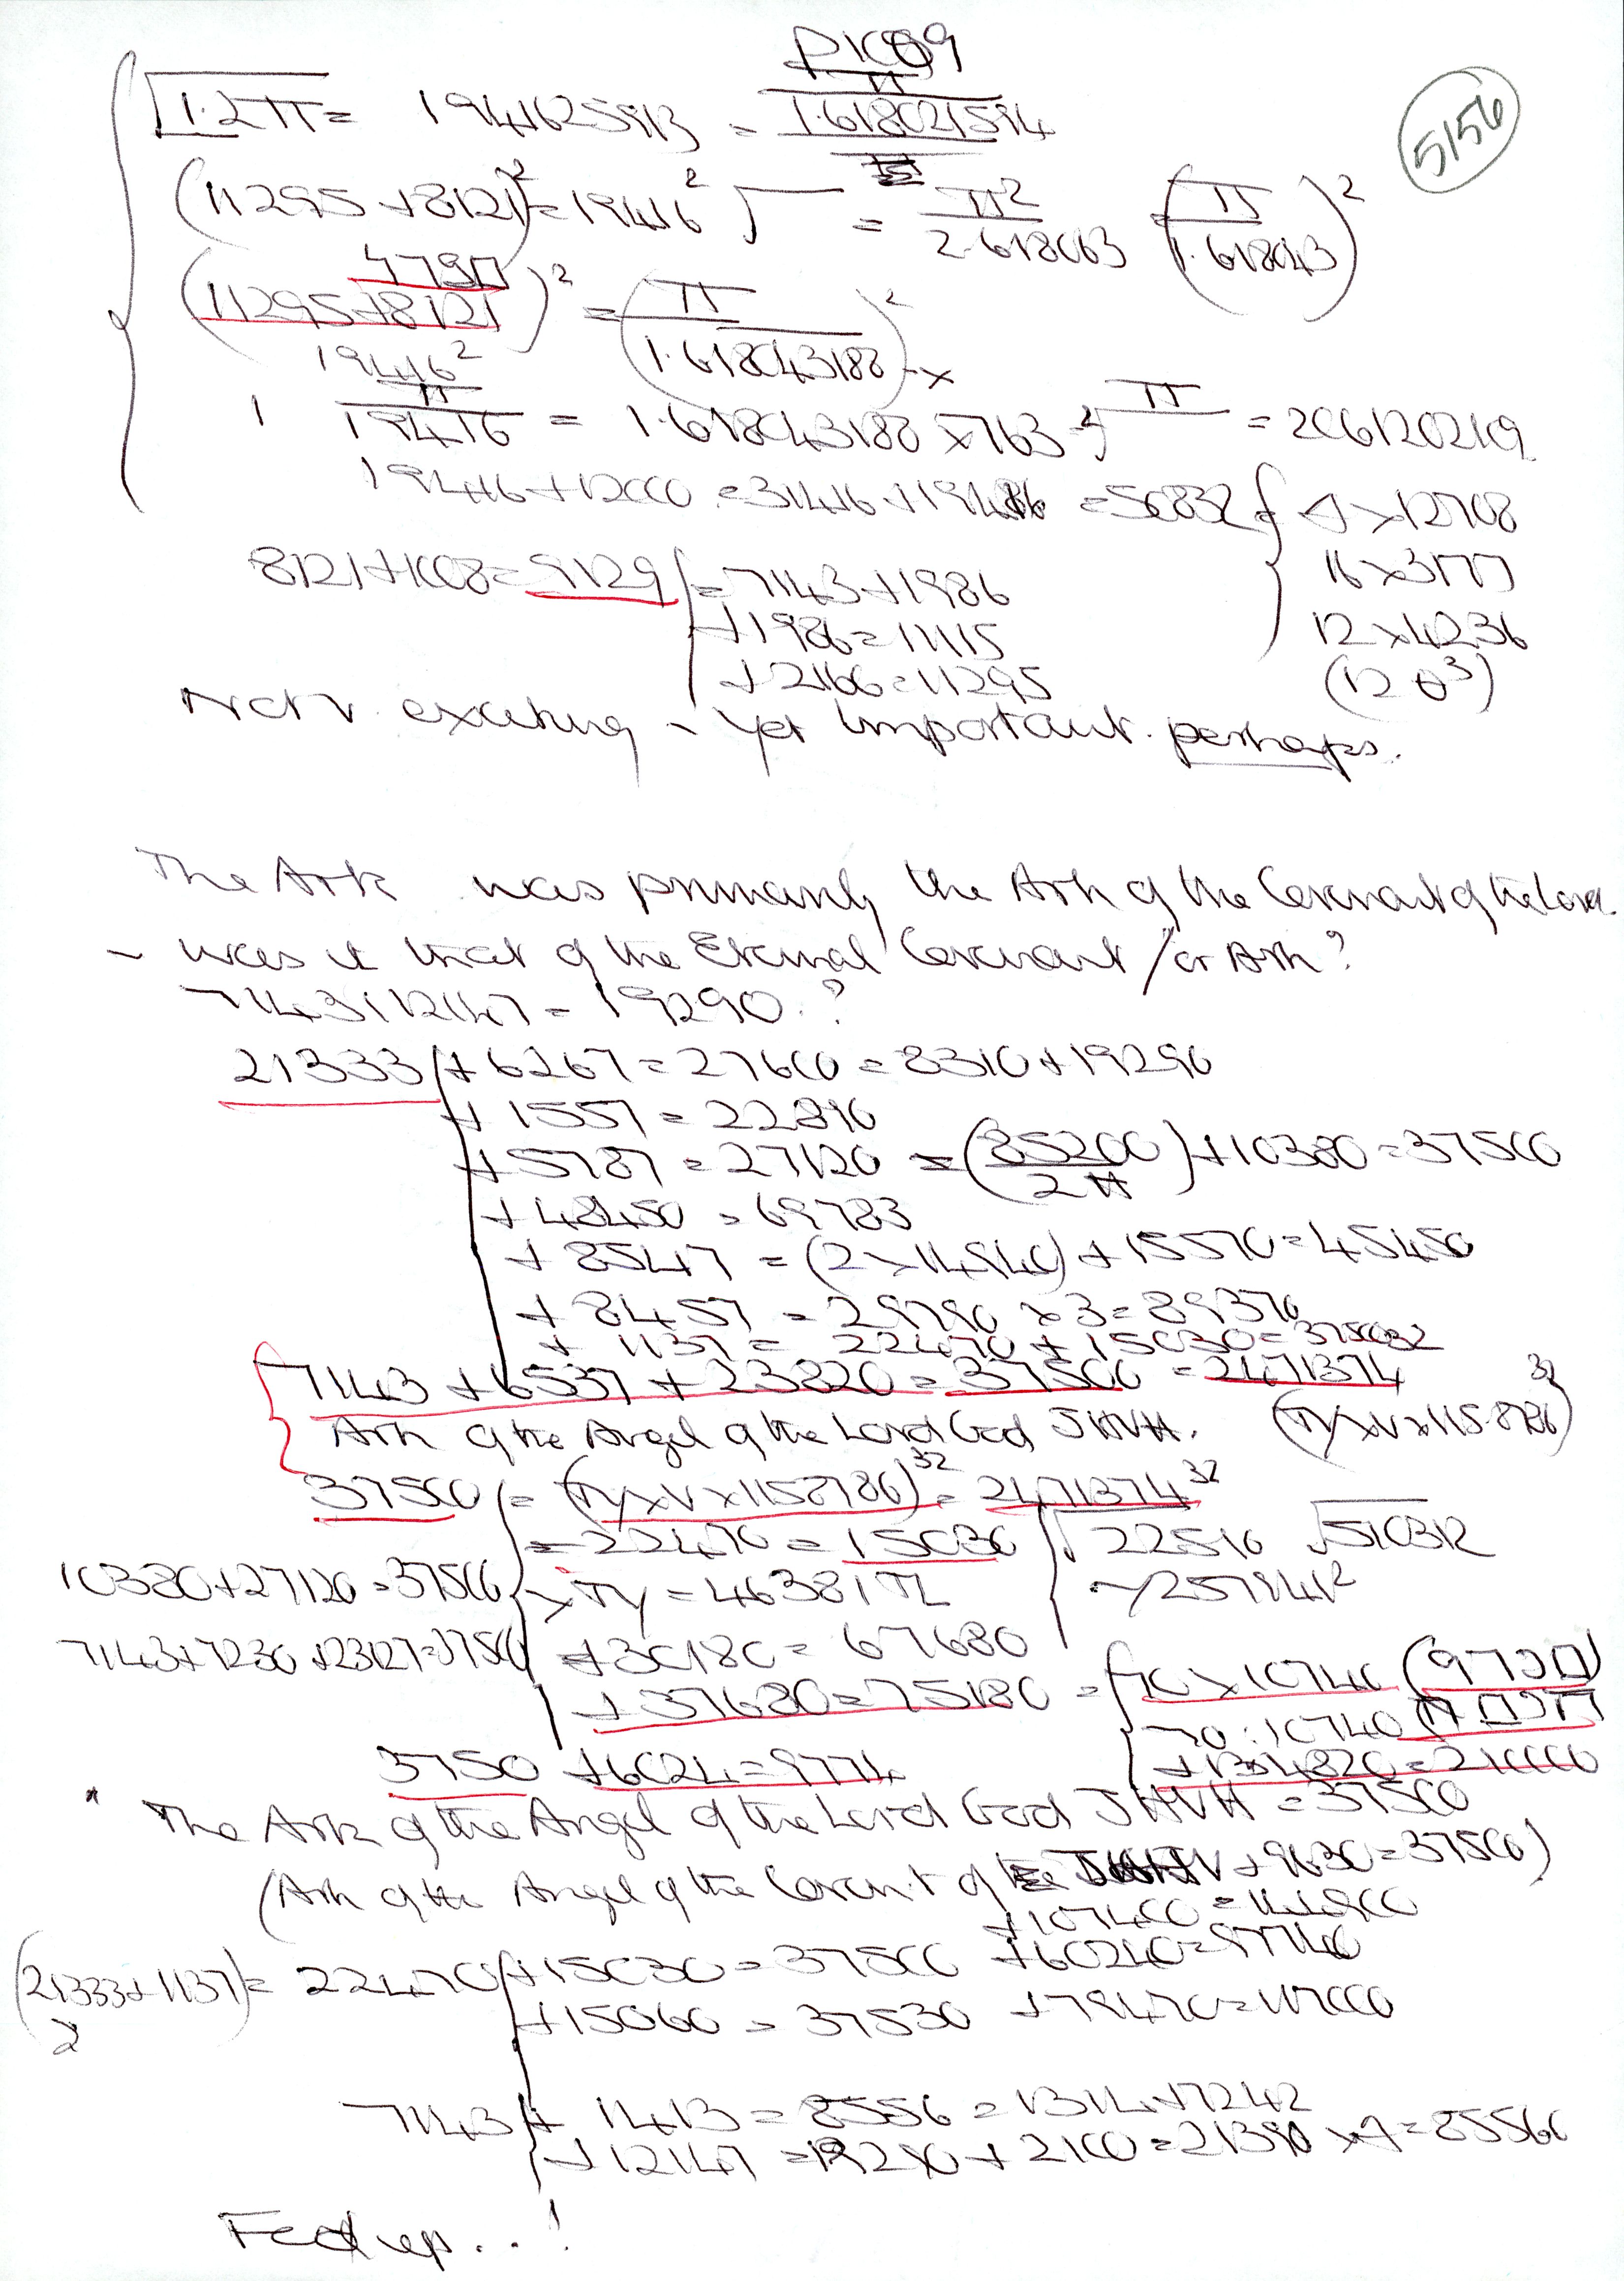 5156
√1.2π = 1941625913 = π / 1.618021594
(11295 + 8121)² = 19416² √ = π² / 2.618063 (π / 1.618043)²
(11295 + 8121)² = (π / 1.618043188)² x
19416²
1 π / 19416 = 1.618043188 x 763 π = 206120219
19416 + 12000 = 31416 + 19416 = 50832 { 4 x 12708
8121 + 1008 = 9129 { = 7143 + 1986 16 x 3177
+ 1986 = 11115 12 x 4236
+ 2166 = 11295 (12 θ³)
Not v. exciting - yet important perhaps.
The Ark was primarily the Ark of the Covenant of the Lord.
- was it that of the Eternal Covenant / or Ark?
7143 + 12147 = 19290 . ?
21333 + 6267 = 27600 = 8310 + 19290
+ 1557 = 22890
+ 5787 = 27120 = (85200 / 2π) + 10380 = 37500
+ 48450 = 69783
+ 8547 = (2 x 14940) + 15570 = 45450
+ 8457 = 29790 x 3 = 89370
+ 1137 = 22470 + 15030 = 37500
7143 + 6537 + 23820 = 37500 = 2471374
Ark of the Angel of the Lord God JHVH. (πy x v x 115.8786)³²
37500 = (πy x v x 1158786)³² = 2471374³²
= 22470 = 15030 22516 √510312
10380 + 27120 = 37500 x πy = 46381 π 25794²
7143 + 7230 + 23127 = 37500 + 30180 = 67680
+ 37680 = 75180 = 70 x 10740
70 : 10740
3750 + 6024 = 9774 + 134820 = 210000
* The Ark of the Angel of the Lord God JHVH = 37500
(Ark of the Angel of the Coven't of + 9630 = 37500)
+ 107400 = 144900
(21333 + 1137) = 22470 + 15030 = 37500 + 60240 = 97740
+ 15060 = 37530 + 79470 = 117000
7143 + 1413 = 8556 = 1314 + 7242
+ 12147 = 19290 + 2100 = 21390 x 4 = 85560
Fed up . . !